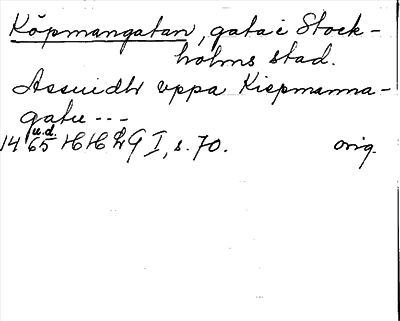 Köpmangatan, gata i Stock-
holms stad.
Assuidh vppa Kiøpmanna-
gatu ---
14 u.d. 65 HH LG I, s. 70. orig.